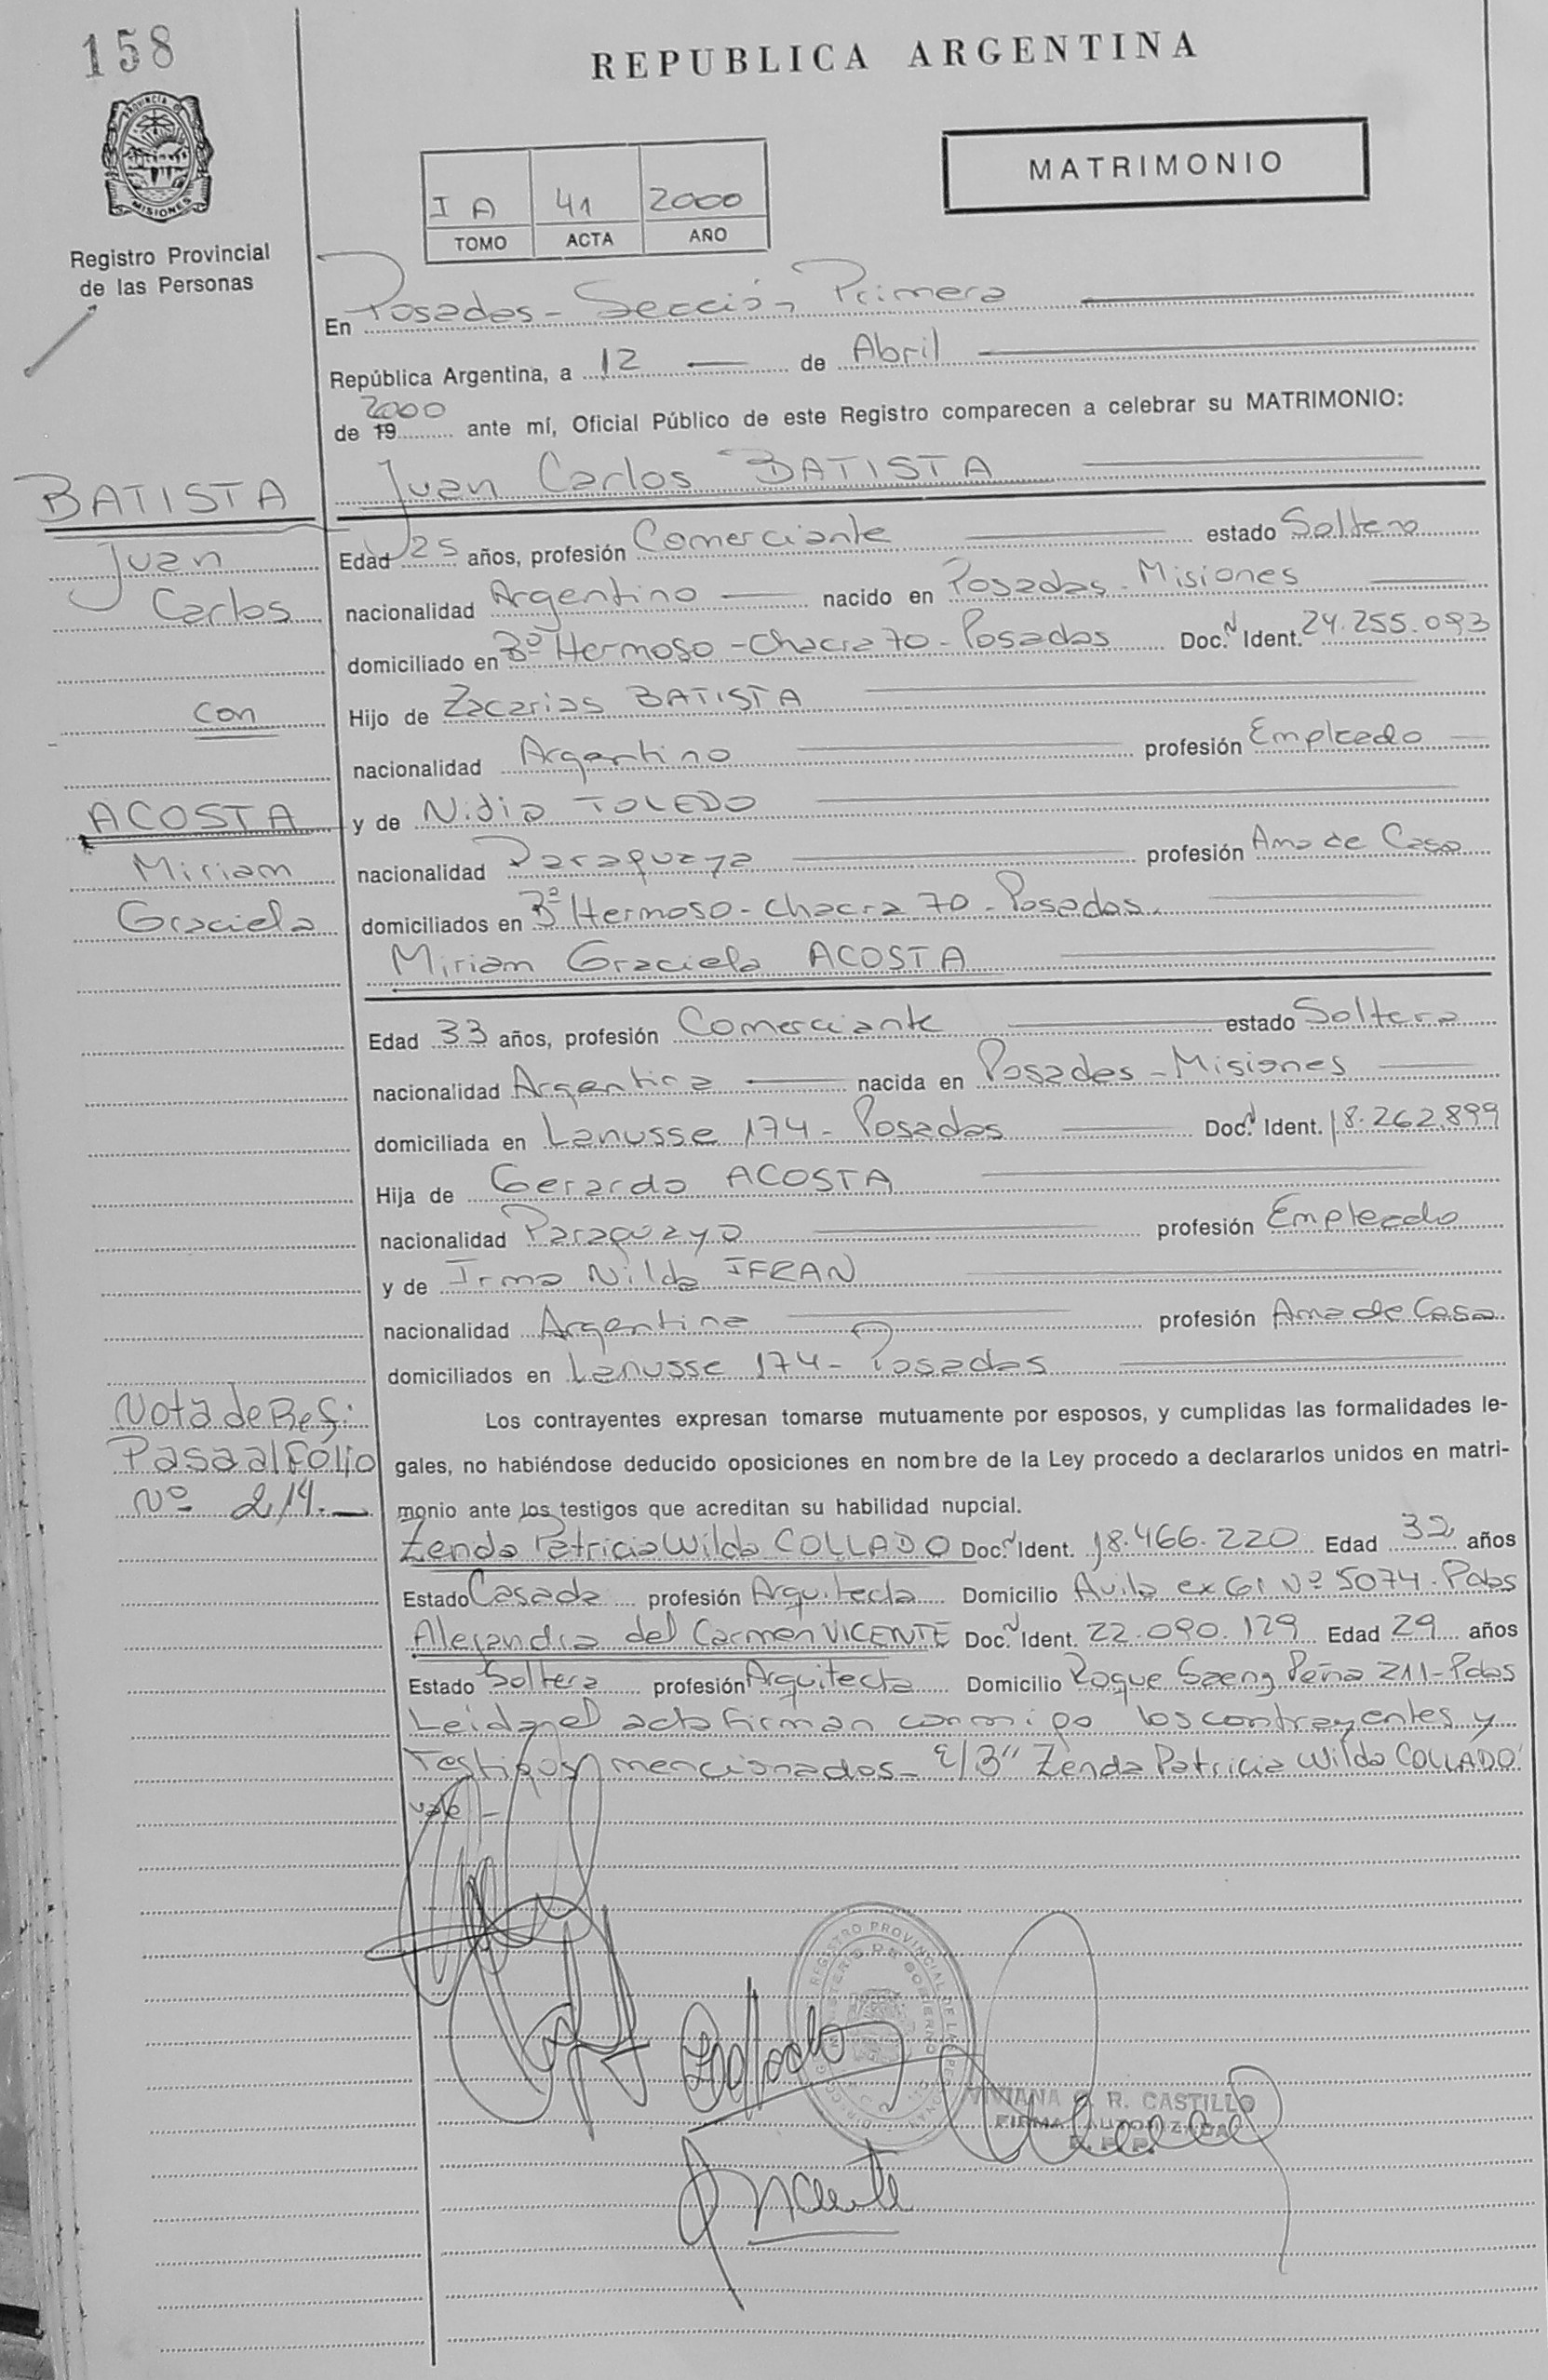 158
REPUBLICA ARGENTINA
PROVINCIA DE
MISIONES
Registro Provincial
de las Personas
MATRIMONIO
I A 41 2000
TOMO ACTA AÑO
En Posadas - Sección Primera
República Argentina, a 12 de Abril
2000
de 19 ante mí, Oficial Público de este Registro comparecen a celebrar su MATRIMONIO:
Juan Carlos BATISTA
BATISTA
Juan
Carlos
con
ACOSTA
Miriam
Graciela
Edad 25 años, profesión Comerciante estado Soltero
nacionalidad Argentino nacido en Posadas - Misiones
domiciliado en Bº Hermoso - Chacra 70 - Posadas Doc. N Ident. 24.255.093
Hijo de Zacarias BATISTA
nacionalidad Argentino profesión Empleado
y de Nidia TOLEDO
nacionalidad Paraguaya profesión Ama de Casa
domiciliados en Bº Hermoso - Chacra 70 - Posadas.
Miriam Graciela ACOSTA
Edad 33 años, profesión Comerciante estado Soltera
nacionalidad Argentina nacida en Posadas - Misiones
domiciliada en Lanusse 174 - Posadas Doc. N Ident. 18.262.899
Hija de Gerardo ACOSTA
nacionalidad Paraguayo profesión Empleado
y de Irma Nilda IFRAN
nacionalidad Argentina profesión Ama de Casa
domiciliados en Lanusse 174 - Posadas
Nota de Ref:
Pasa al Folio
Nº 214.-
Los contrayentes expresan tomarse mutuamente por esposos, y cumplidas las formalidades le-
gales, no habiéndose deducido oposiciones en nombre de la Ley procedo a declararlos unidos en matri-
monio ante los testigos que acreditan su habilidad nupcial.
Zenda Patricia Wilda COLLADO Doc. N Ident. 18.466.220 Edad 32 años
Estado Casada profesión Arquitecta Domicilio Avila ex 61 Nº 5074 - Pdas
Alejandra del Carmen VICENTE Doc. N Ident. 22.090.129 Edad 29 años
Estado Soltera profesión Arquitecta Domicilio Roque Saenz Peña 211 - Pdas
Leida el acta firman conmigo los contrayentes y
Testigos mencionados - E/B" Zenda Patricia Wilda COLLADO"
vale -
REGISTRO PROVINCIAL DE LAS PERSONAS
MINISTERIO DE GOBIERNO
Collado
VIVIANA R. CASTILLO
FIRMA AUTORIZADA
R. P. P.
Vicente